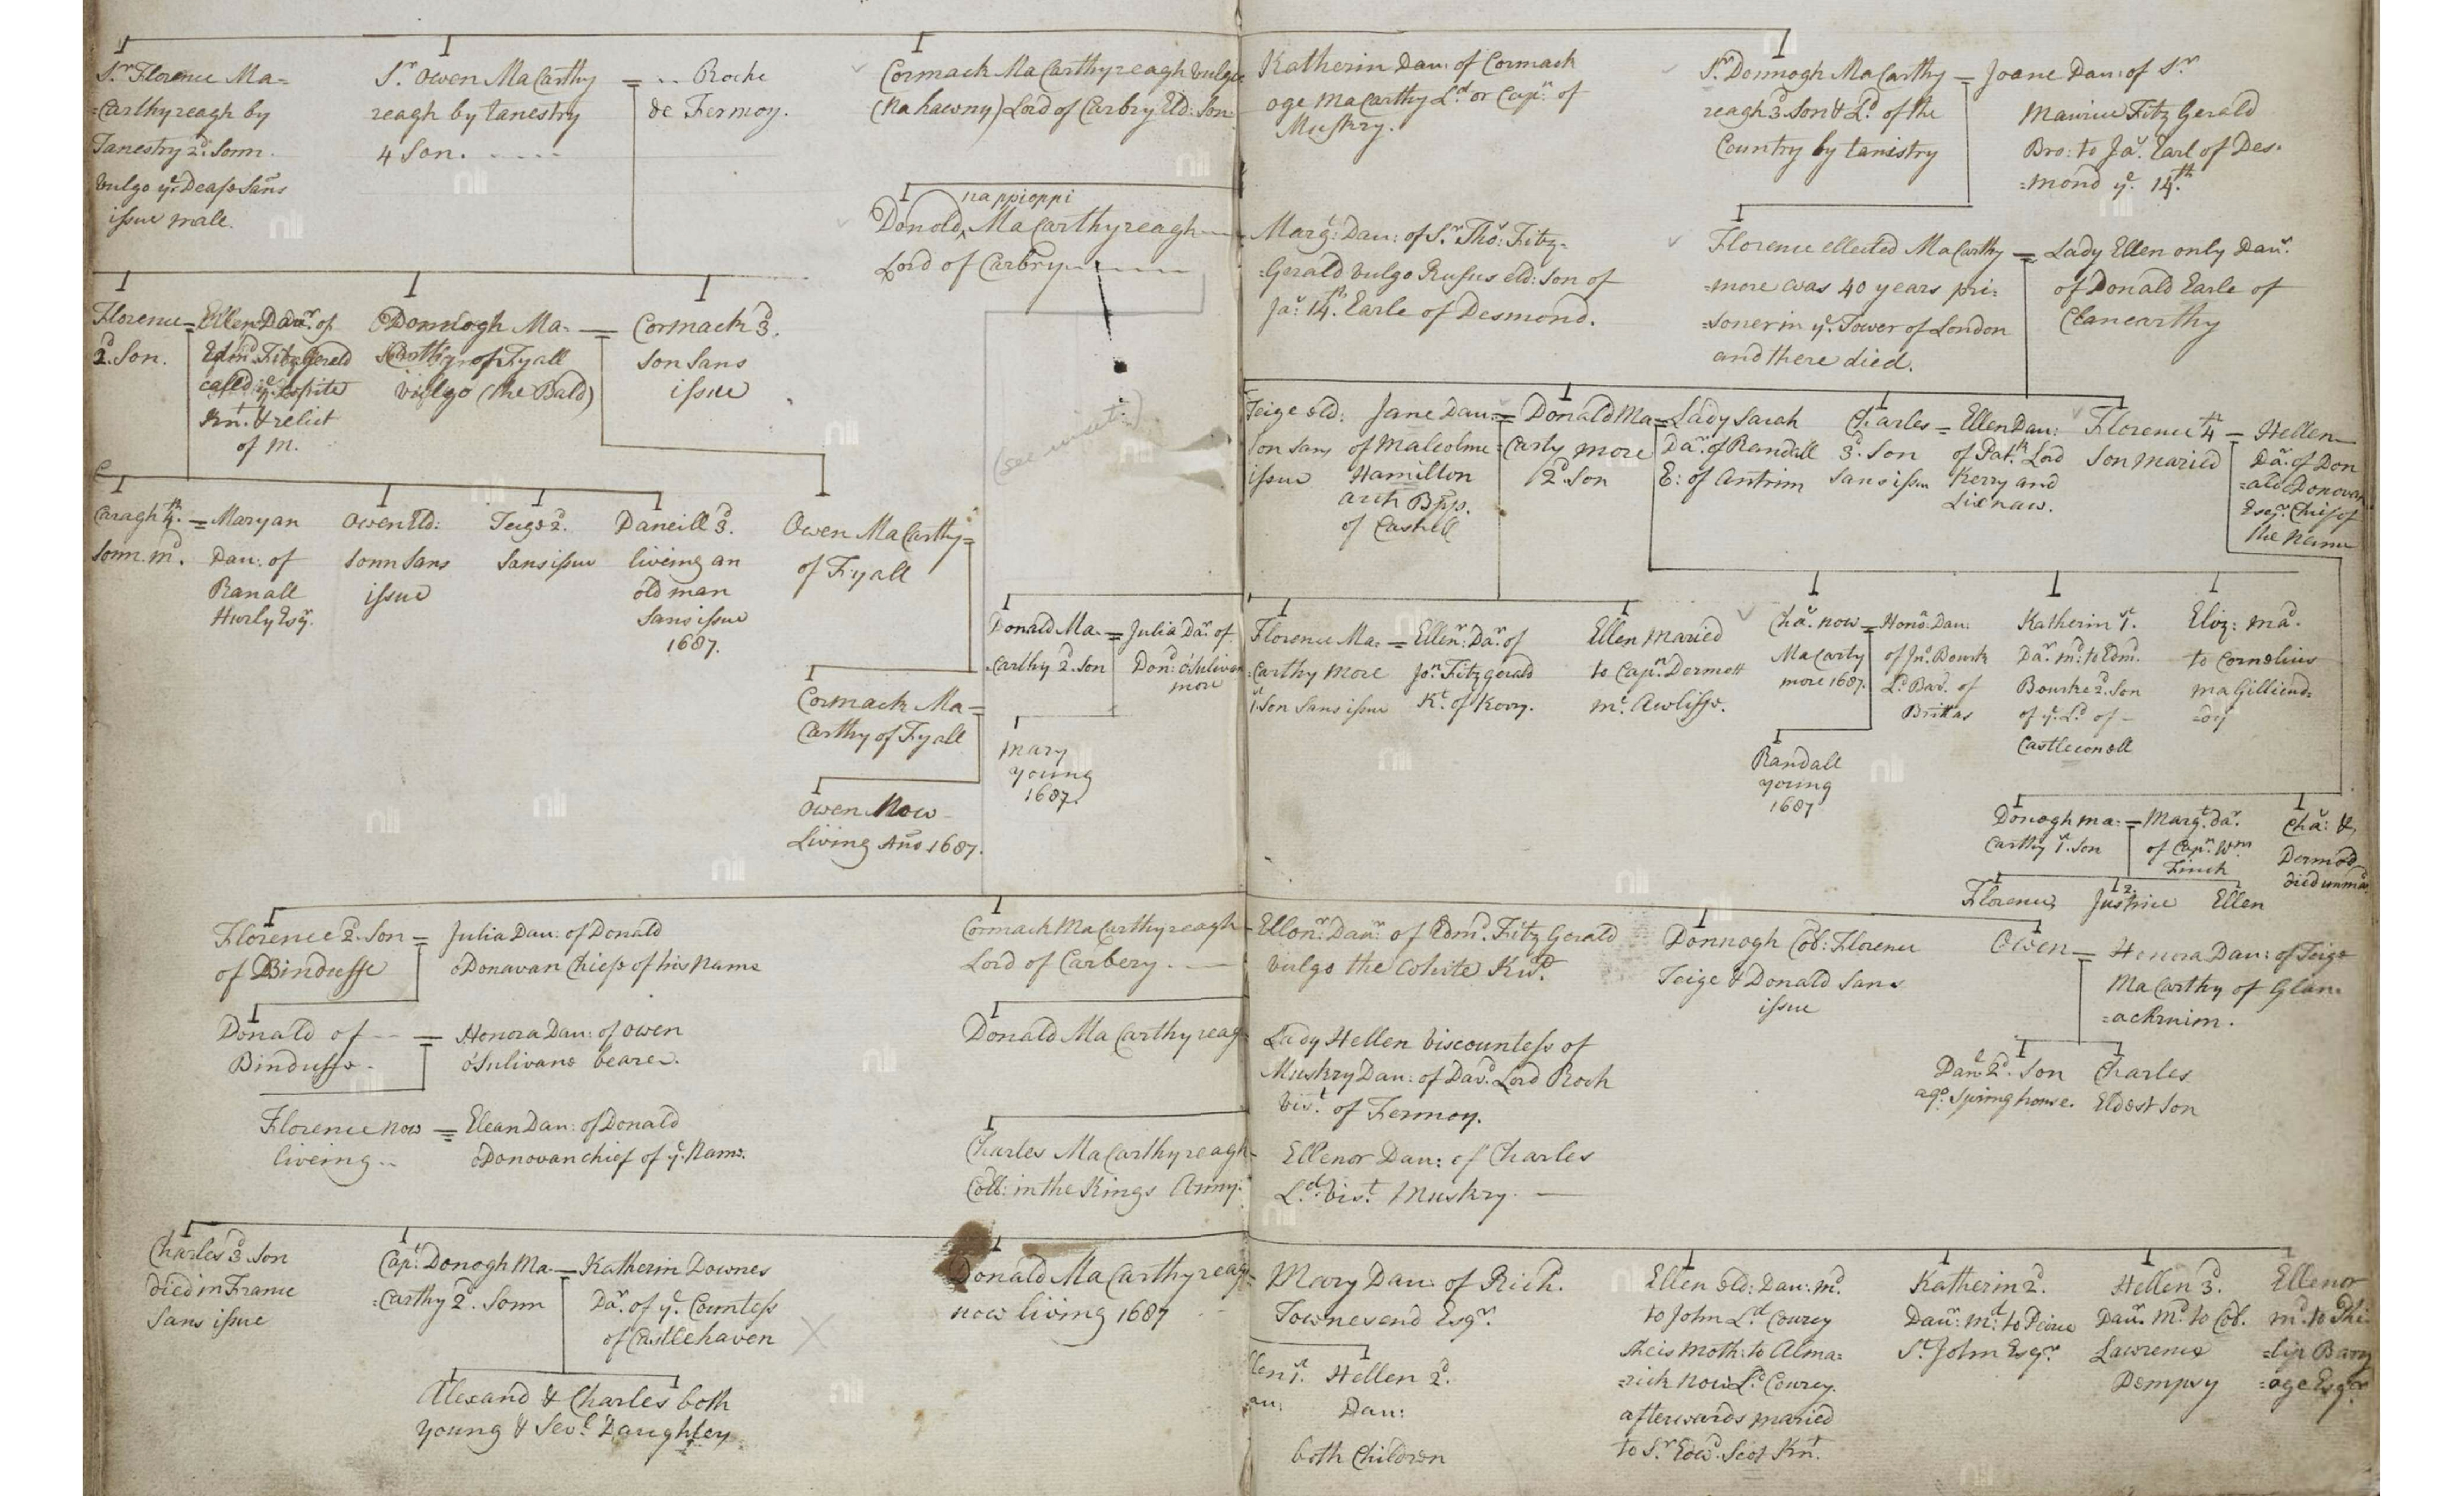 Sr Florence Ma=
=Carthyreagh by
Tanestry 2d. Sonn.
vulgo ye Deafe Sans
issue male.
Sr. Owen MaCarthy
reagh by tanestry
4 Son. ....
= .. Roche
de Fermoy.
Cormack MaCarthyreagh vulgo
(Na hawny) Lord of Carbry Eld: Son
Katherin Dau: of Cormack
oge MaCarthy Ld. or Capn. of
Muskry.
Sr Donnogh MaCarthy =
reagh 3 Son & Ld. of the
Country by tanistry
Joane Dau: of Sr
Maurice Fitz Gerald
Bro: to Ja. Earl of Des.
=mond ye. 14th.
nappioppi
Donold, MaCarthyreagh
Lord of Carbry
Marg: Dau: of Sr. Tho: Fitz-
=Gerald vulgo Rufus eld: Son of
Ja: 14th. Earle of Desmond.
Florence ellected MaCarthy =
=more was 40 years pri:
=soner in ye. Tower of London
and there died.
Lady Ellen only Daur.
of Donald Earle of
Clancarthy
Florence =
2d. Son.
Ellen Daur. of
Edmd Fitz Gerald
called ye. White
Knt. & relict
of M.
Donnogh Ma- =
Carthy of Fyall
vulgo (the Bald)
Cormack 3d.
Son Sans
issue
(see
Teige eld:
Son Sans
issue
Jane Dau: =
of Malcolme
Hamilton
arch Bpp.
of Cashell
Donald Ma =
Carty more
2d. Son
Lady Sarah
Dar. of Randall
E: of Antrim
Charles =
3d. Son
Sans issu
Ellen Dau:
of Patk. Lord
Kerry and
Lixnaw.
Florence 4th =
Son Maried
Hellen
Da. of Don
=ald oDonovan
Esqr. Chif of
the Name
Caragh 4th. =
Sonn. md.
Maryan
Dau: of
Ranall
Hurly Esqr.
Owen Eld:
Sonn Sans
issue
Teige 2d.
Sans issue
Daneill 3d.
liveing an
old man
Sans issue
1687.
Owen MaCarthy=
of Fyall
Donald Ma- =
Carthy 2d. Son
Julia Dar. of
Don: oSulivan
more
Florence Ma: =
Carthy More
1st. Son Sans issue
Ellenr: Dar. of
Jon. Fitzgerald
Kt. of Kerry.
Ellen Maried
to Capn. Dermott
mc. Awlisse.
Cha. now =
MaCarty
more 1687.
Hono: Dau:
of Jno. Bourk
Ld. Bar. of
Brittas
Katherin 1st.
Dar. md: to Edm.
Bourke 2d. Son
of ye. Ld of -
Castleconell
Eliz: Md.
to Cornelius
maGilliend=
Cormack Ma- =
Carthy of Fyall
Mary
young
1687.
Randall
young
1687
Owen Now
Living Ano 1687.
Donogh ma: =
Carthy 1st. Son
Margt. Dar.
of Capn. Wm.
Finch
Cha: &
Dermod
died unmar
Florence, Justine 2. Ellen
Florence 2d. Son =
of Bindusse
Julia Dau: of Donald
oDonavan Chiefe of his Name
Cormack MaCarthyreagh
Lord of Carbery.
Ellonr. Daur. of Edmd. Fitz Gerald
vulgo the White Knt.
Donnogh Col: Florence
Teige & Donald Sans
issue
Owen =
Honora Dau: of Teige
MaCarthy of Glan=
=achruim.
Donald of -- =
Bindusse.
Honora Dau: of Owen
oSulivane beare.
Donald MaCarthyreag
Lady Hellen Viscountess of
Muskry Dau: of Davd. Lord Roch
Vist. of Fermoy.
Danl. 2d. Son
ago. Springhouse.
Charles
Eldest Son
Florence now =
liveing..
Elean Dau: of Donald
oDonovan chief of ye. Name.
Charles MaCarthyreagh
Coll: in the Kings Army.
Ellenor Dau: of Charles
Ld. Vist. Muskry.
Charles 3d. Son
died in France
Sans issue
Capt: Donogh Ma- =
=Carthy 2d. Sonn
Katherin Downes
Dar. of ye. Countess
of Castlehaven
Donald MaCarthyreag
now living 1687
Mary Dau: of Richd.
Townesend Esqr.
Ellen eld: Dau: md.
to John Ld Courcy
She is Moth: to Alma=
=rick now Ld. Courcy.
afterwards maried
to Sr. Edwd. Scot Knt.
Katherin 2d.
Daur: Md: to Peirce
St. John Esqr.
Hellen 3d.
Daur. Md to Col.
Lawrence
Dempsy
Ellenor
md. to Phi
=lip Barry
=oge Esqr
Alexand & Charles both
young & Sevl. Daughter
llen 1st.
au:
Hellen 2d.
Dau:
both Children